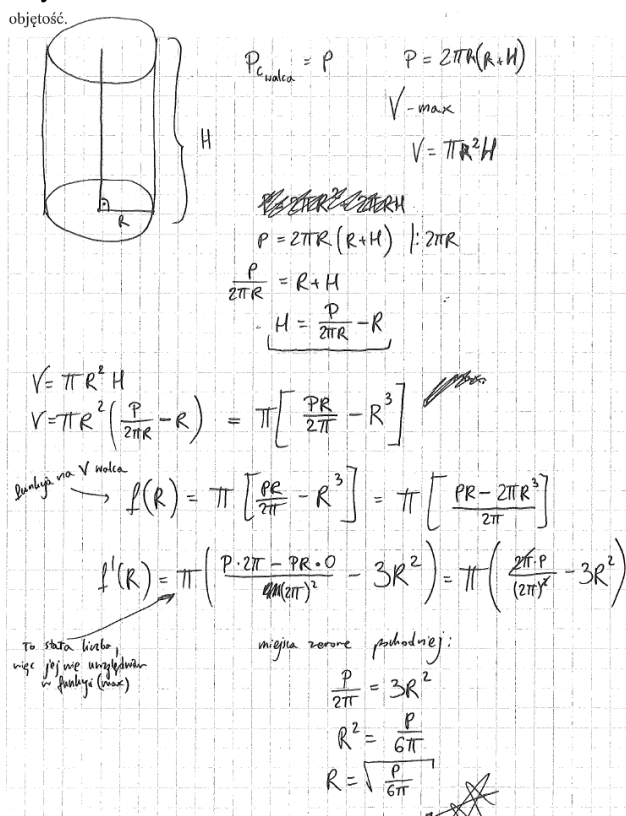 objętość.
P_c walca = P P = 2πR(R+H)
V - max
V = πR²H
H
R
P = 2πR(R+H) |: 2πR
P/2πR = R+H
H = P/2πR − R
V = πR²H
V = πR²(P/2πR − R) = π[PR/2π − R³]
funkcja na V walca
f(R) = π[PR/2π − R³] = π[(PR − 2πR³)/2π]
f'(R) = π((P·2π − PR·0)/(2π)² − 3R²) = π(2π·P/(2π)² − 3R²)
To stała liczba,
więc jej nie uwzględniam
w funkcji (max)
miejsca zerowe pochodnej:
P/2π = 3R²
R² = P/6π
R = √(P/6π)